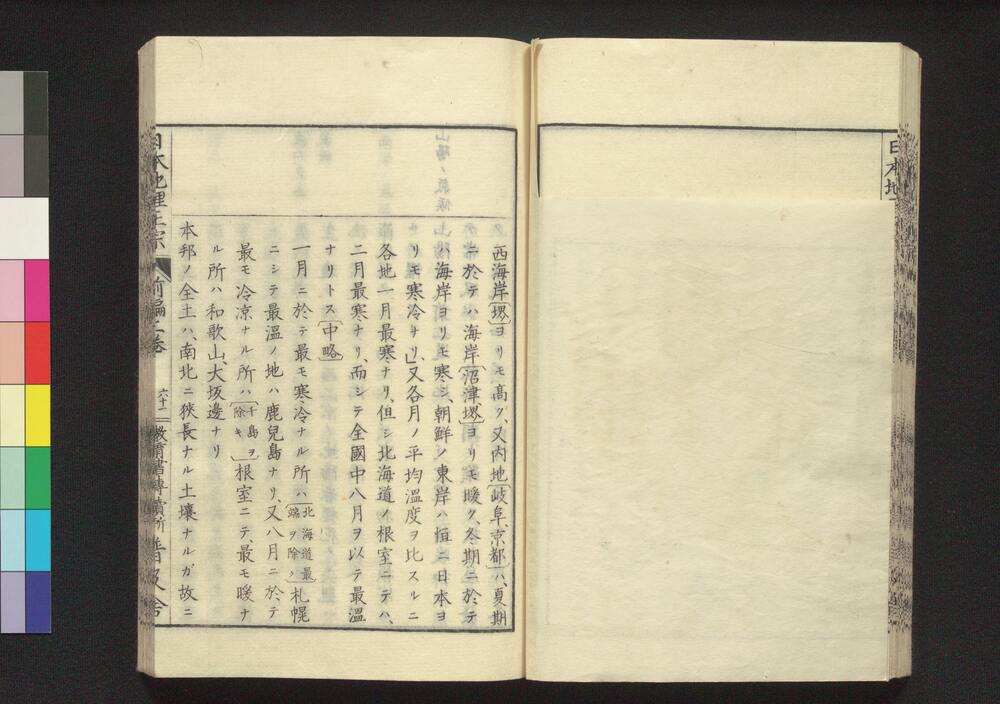 日本地
西海岸（堺）ヨリモ高ク、又内地（岐阜、京都）ハ、夏期
ニ於テハ海岸（沼津、堺）ヨリモ暖ク、冬期ニ於テ
ハ海岸ヨリモ寒シ、朝鮮ノ東岸ハ恒ニ日本ヨ
リモ寒冷ナリ、」又各月ノ平均溫度ヲ比スルニ
各地一月最寒ナリ、但シ北海道ノ根室ニテハ、
二月最寒ナリ、而シテ全國中八月ヲ以テ最溫
ナリトス（中略）
一月ニ於テ最モ寒冷ナル所ハ（北海道最端ヲ除ク）札幌
ニシテ最溫ノ地ハ鹿兒島ナリ、又八月ニ於テ
最モ冷凉ナル所ハ（千島ヲ除キ）根室ニテ、最モ暖ナ
ル所ハ和歌山、大坂邊ナリ
本邦ノ全土ハ、南北ニ狹長ナル土壤ナルガ故ニ
日本地理正宗 前編二卷 六十一 教育書專賣所 普及舍